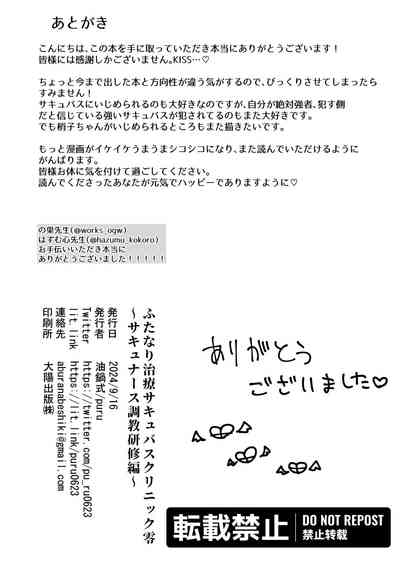 あとがき
こんにちは、この本を手に取っていただき本当にありがとうございます!
皆様には感謝しかございません。KISS…♡
ちょっと今まで出した本と方向性が違う気がするので、びっくりさせてしまったら
すみません!
サキュバスにいじめられるのも大好きなのですが、自分が絶対強者、犯す側
だと信じている強いサキュバスが犯されてるのもまた大好きです。
でも梢子ちゃんがいじめられるところもまた描きたいです。
もっと漫画がイケイケうまうまシコシコになり、また読んでいただけるように
がんばります。
皆様お体に気を付けて過ごしてください。
読んでくださったあなたが元気でハッピーでありますように♡
の巣先生(@works_ogw)
はずむ心先生(@hazumu_kokoro)
お手伝いいただき本当に
ありがとうございました!!!!!
ありがとう
ございました♡
ふたなり治療サキュバスクリニック零
～サキュナース調教研修編～
発行日 2024/9/16
発行者 油鍋式/puru
Twitter https://twitter.com/pu_ru0623
lit.link https://lit.link/puru0623
連絡先 aburanabeshiki@gmail.com
印刷所 大陽出版㈱
転載禁止
DO NOT REPOST
禁止转载